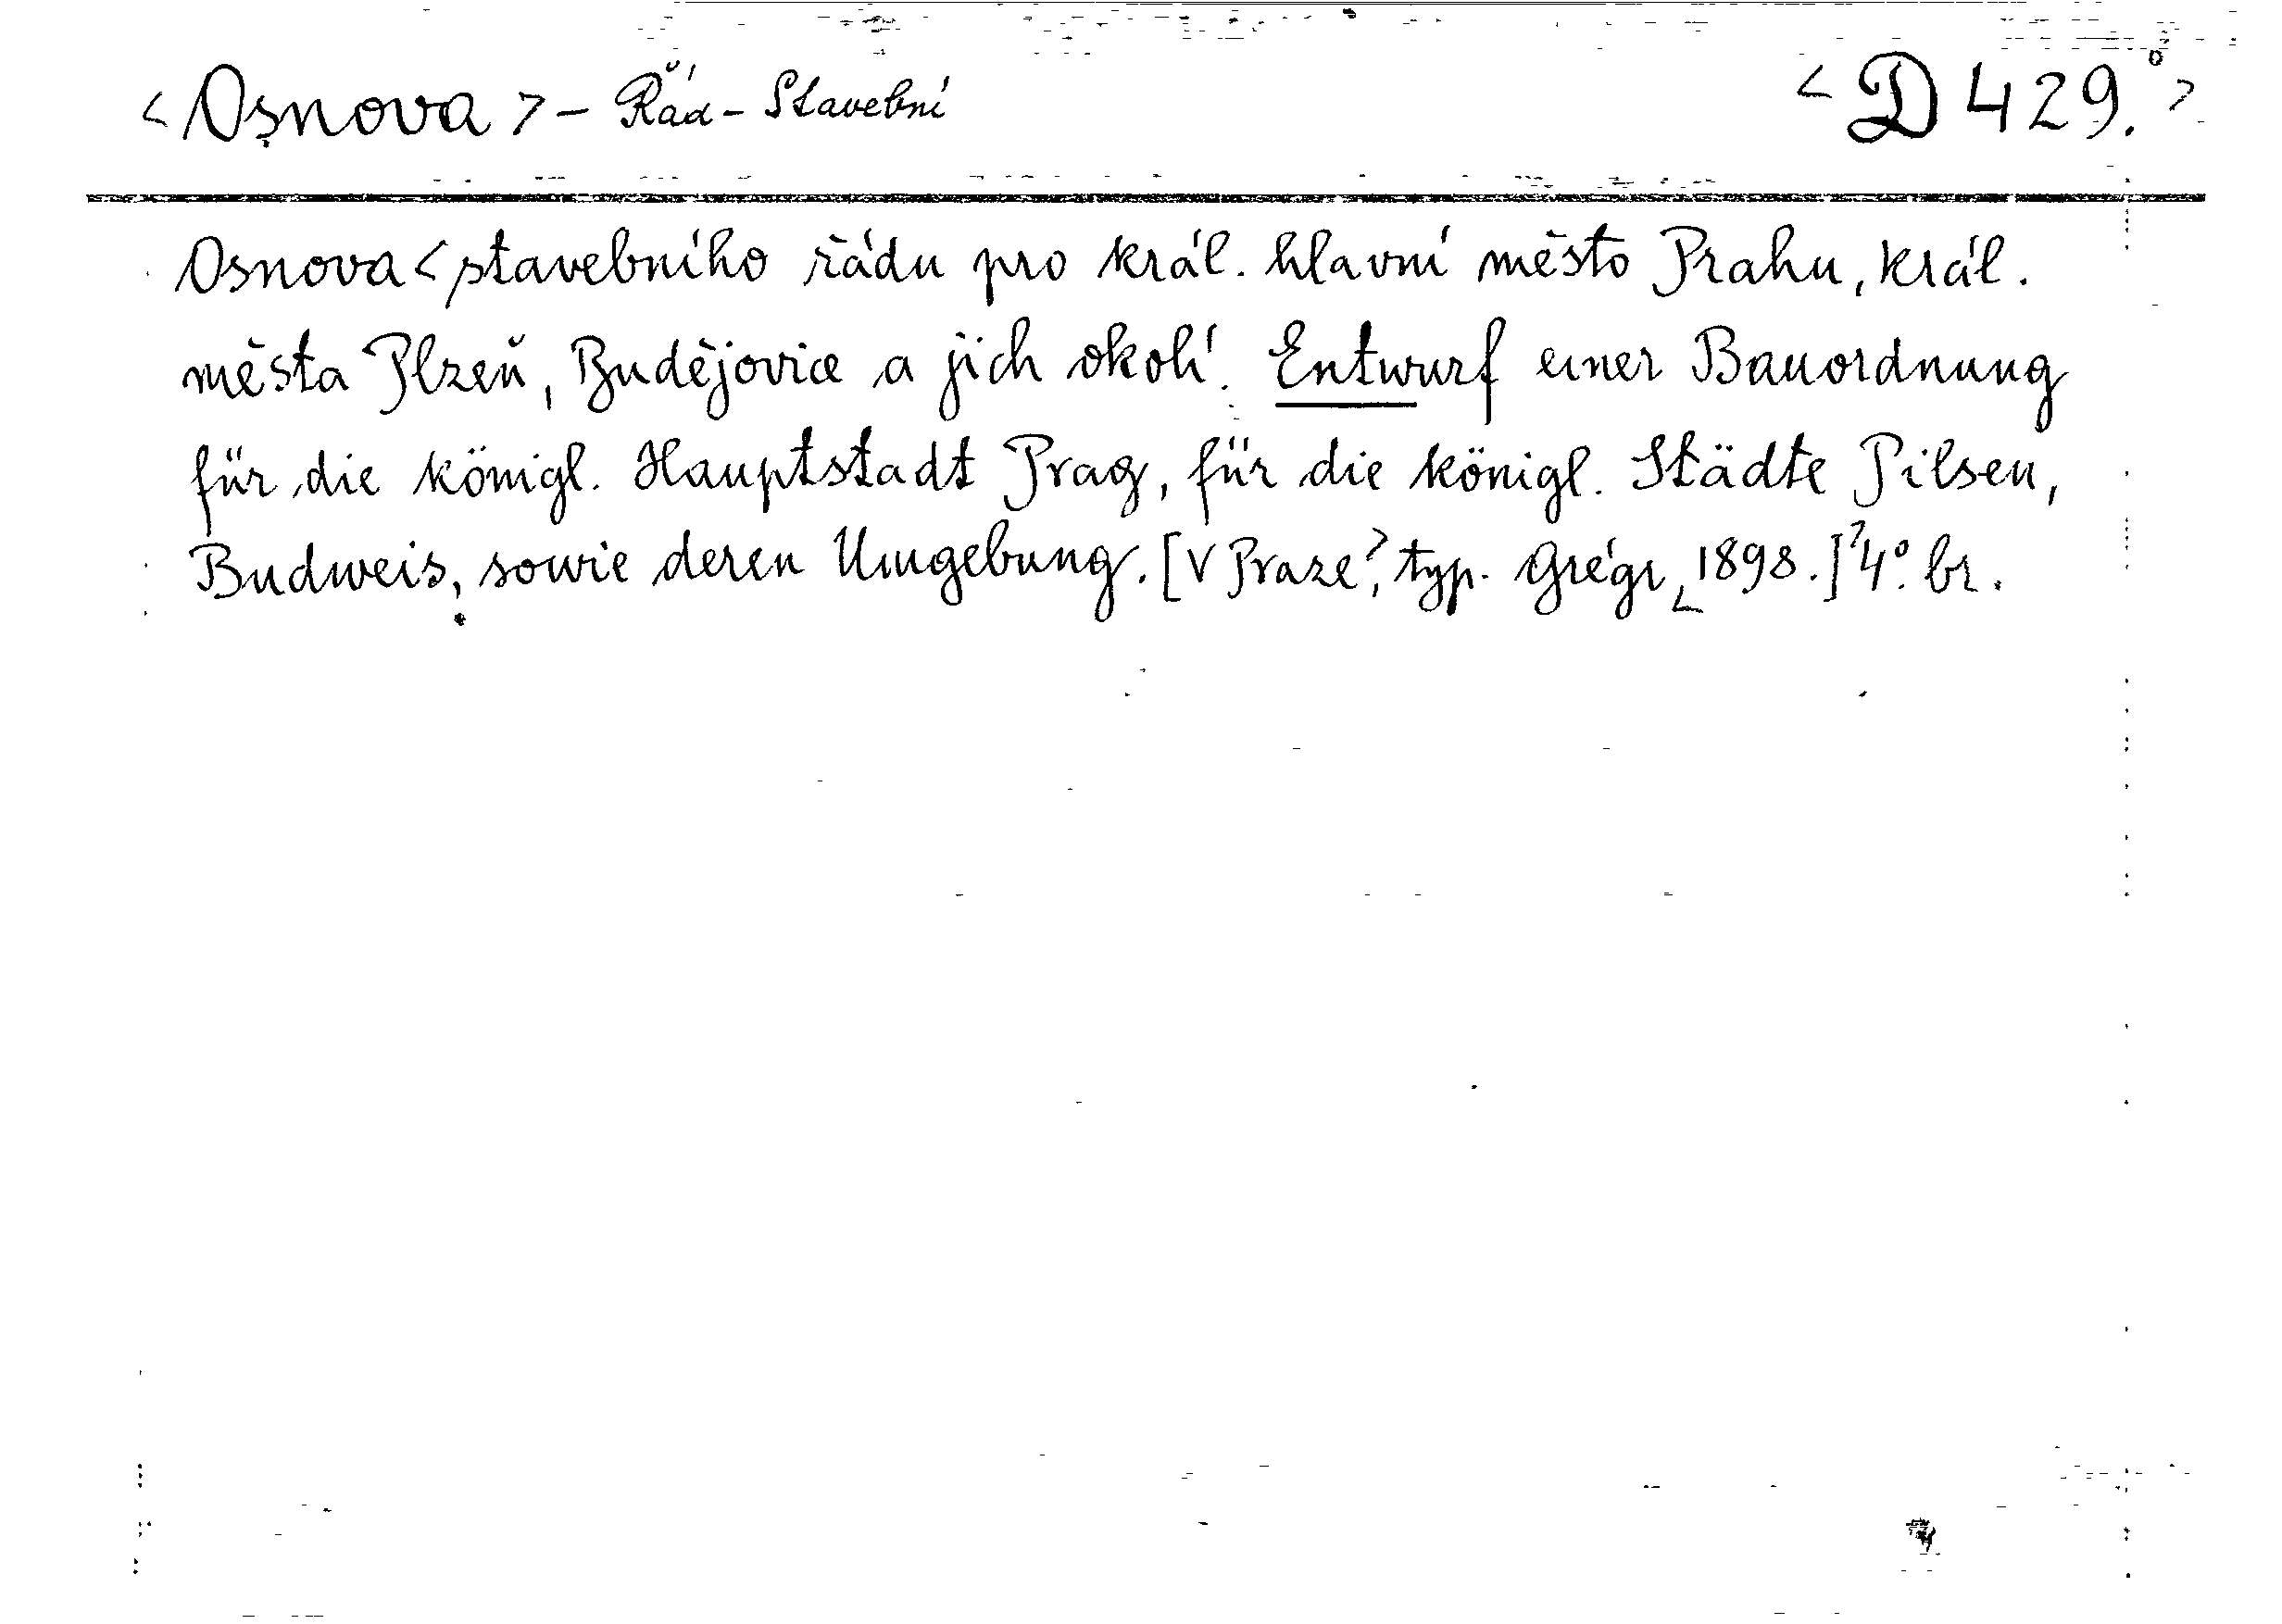 < Osnova > - Řád - Stavební < D 429.° >
Osnova < stavebního řádu pro král. hlavní město Prahu, král.
města Plzeň, Budějovice a jich okolí. Entwurf einer Bauordnung
für die königl. Hauptstadt Prag, für die königl. Städte Pilsen,
Budweis, sowie deren Umgebung. [V Praze?, typ. Grégr, 1898.]? 4°. br.